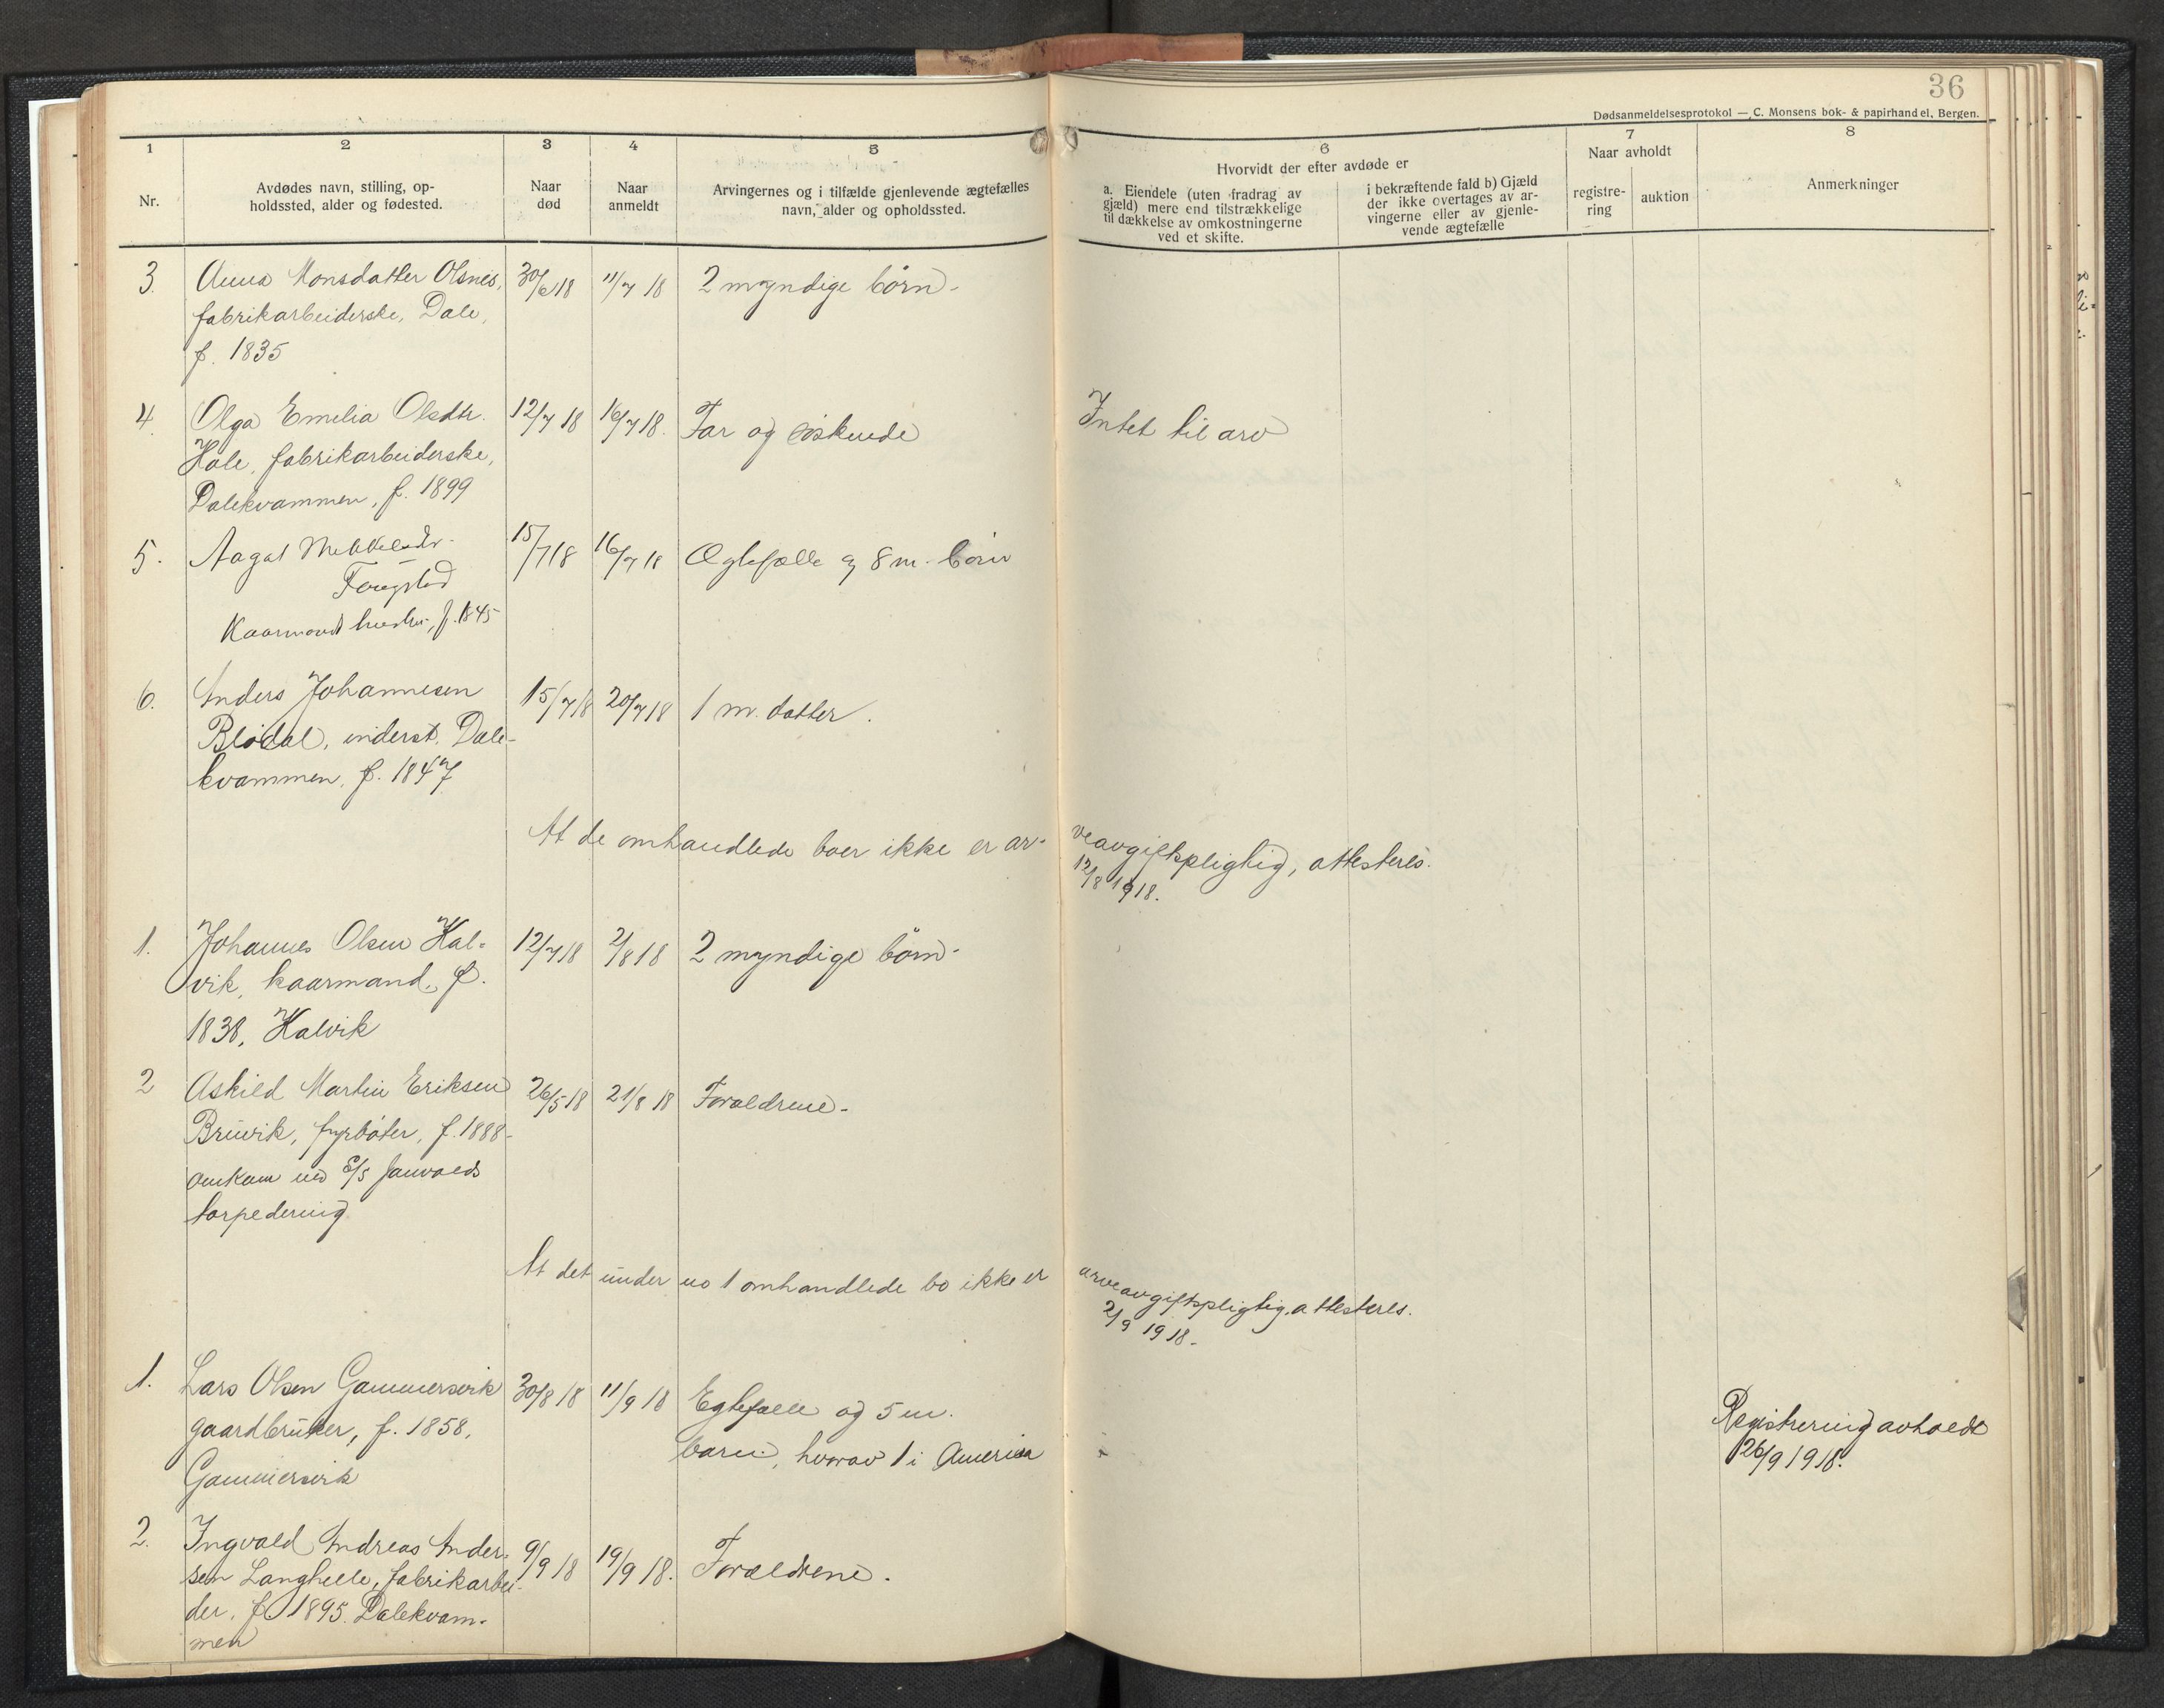 36
Dødsanmeldelsesprotokol — C. Monsens bok- & papirhandel, Bergen.
1
2
3
4
5
6
7
8
Nr.
Avdødes navn, stilling, op-
holdssted, alder og fødested.
Naar
død
Naar
anmeldt
Arvingernes og i tilfælde gjenlevende ægtefælles
navn, alder og opholdssted.
Hvorvidt der efter avdøde er
a. Eiendele (uten fradrag av
gjæld) mere end tilstrækkelige
til dækkelse av omkostningerne
ved et skifte.
i bekræftende fald b) Gjæld
der ikke overtages av ar-
vingerne eller av gjenle-
vende ægtefælle
Naar avholdt
registre-
ring
auktion
Anmerkninger
3. Anna Monsdatter Olsnes, 30/6 18 11/7 18 2 myndige børn-
fabrikarbeiderske, Dale,
f. 1835
4. Olga Emelia Olsdtr. 12/7 18 16/7 18. Far og søskende Intet til arv
Hole, fabrikarbeiderske,
Dalekvammen, f. 1899
5. Aagot Mikkelsdr. 15/7 18 16/7 18 Ægtefælle og 8 m. børn
Kaarmands hustru, f. 1845
6. Anders Johannesen 15/7 18 20/7 18 1 m. datter.
Blødal, inderst, Dale-
kvammen, f. 1847
At de omhandlede boer ikke er ar-
veavgiftspligtig, attesteres.
12/8 1918.
1. Johannes Olsen Kal- 12/7 18 2/8 18 2 myndige børn-
vik, kaarmand, f.
1838, Kalvik
2 Askild Martin Eriksen 26/5 18 21/8 18 Forældrene-
Bruvik, fyrbøter, f. 1888-
omkom ved S/S Janvolds
torpedering
At det under no 1 omhandlede bo ikke er
arveavgiftspligtig, attesteres.
2/9 1918-
1. Lars Olsen Gammersvik 30/8 18 11/9 18 Egtefælle og 5 m. Registrering avholdt
gaardbruker, f. 1858, barn, hvorav 1 i Amerika 26/9 1918.
Gammersvik
2. Ingvald Andreas Ander- 9/9 18 19/9 18. Forældrene.
sen Langhelle, fabrikarbei-
der, f. 1895. Dalekvam-
men